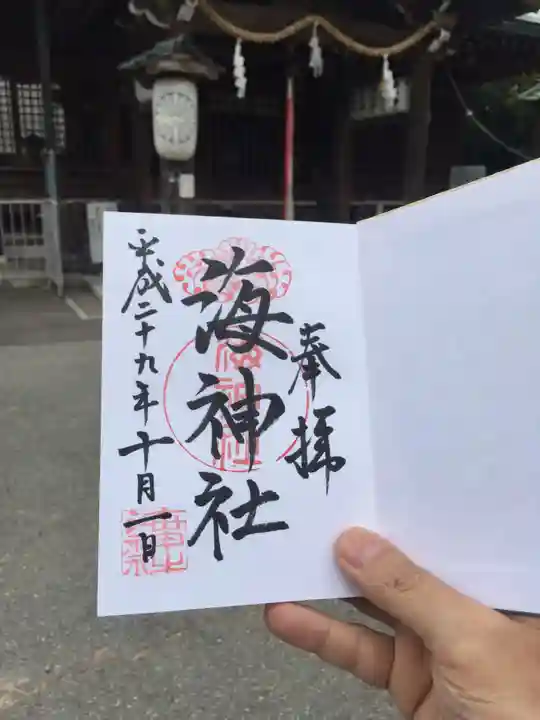 奉拝
海神社
海神社
平成二十九年十月一日